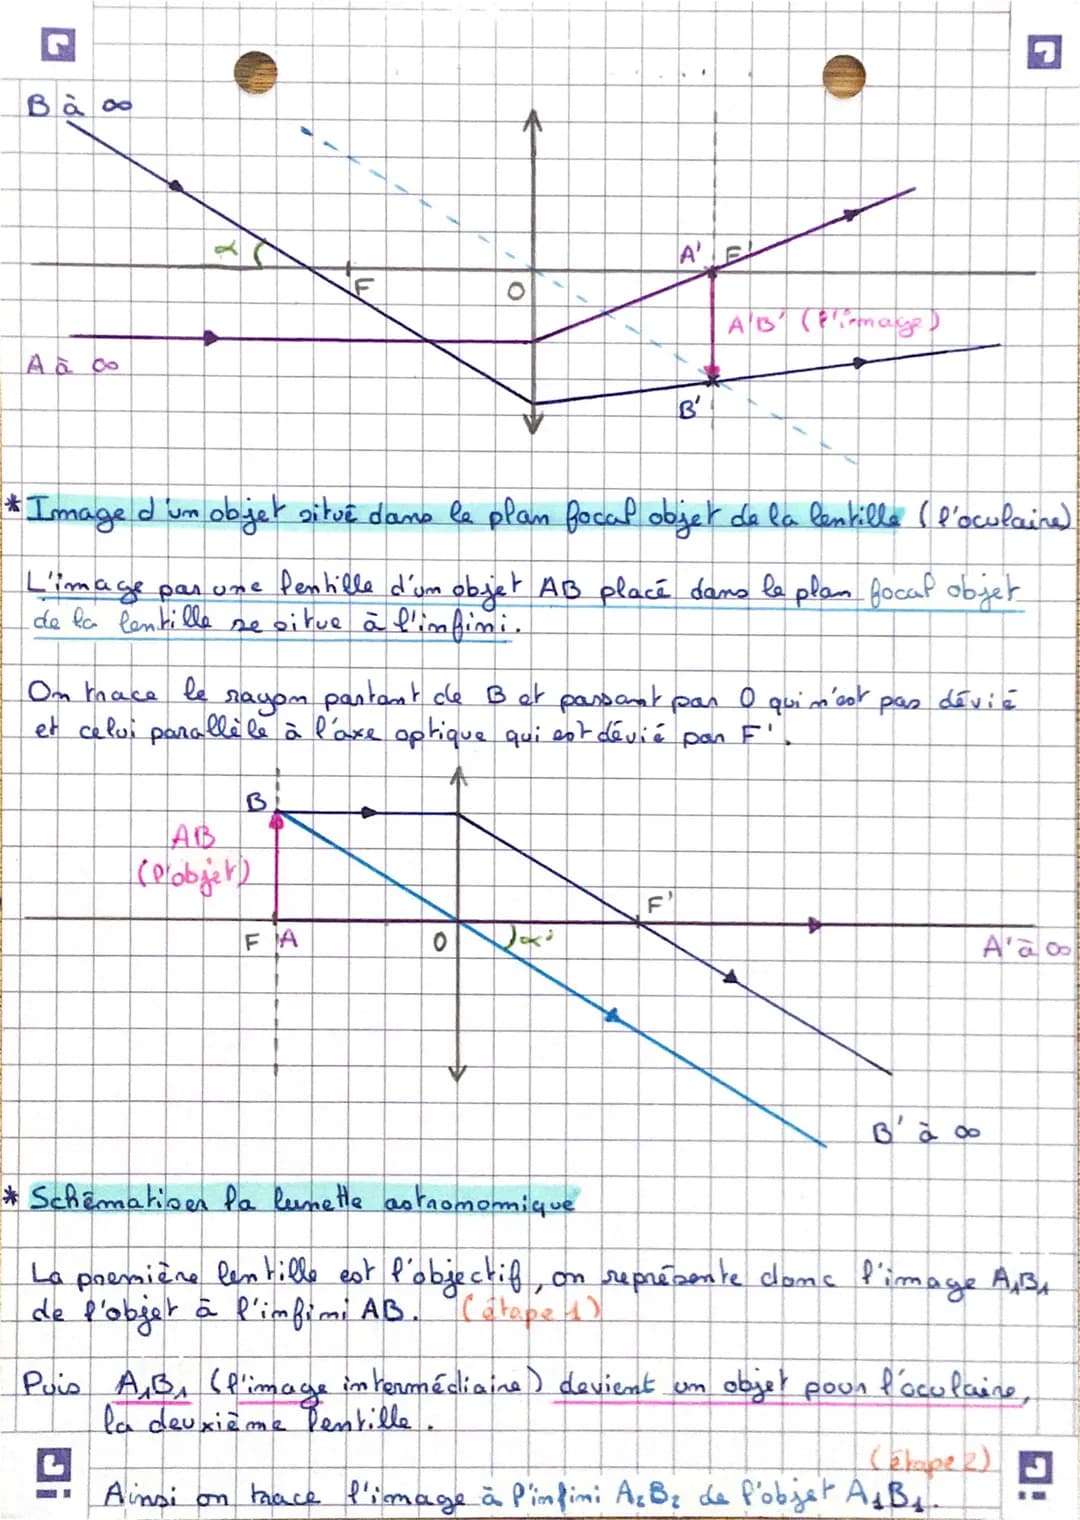 B à ∞
α
F
O
A' F'
A'B' (l'image)
A à ∞
B'
* Image d'un objet situé dans le plan focal objet de la lentille (l'oculaire)
L'image par une lentille d'un objet AB placé dans le plan focal objet
de la lentille se situe à l'infini.
On trace le rayon partant de B et passant par O qui n'est pas dévié
et celui parallèle à l'axe optique qui est dévié par F'.
B
AB
(l'objet)
F'
F A
O
α'
A' à ∞
B' à ∞
* Schématiser la lunette astronomique
La première lentille est l'objectif, on représente donc l'image A₁B₁
de l'objet à l'infini AB. (étape 1)
Puis A₁B₁ (l'image intermédiaire) devient un objet pour l'oculaire,
la deuxième lentille.
(étape 2)
Ainsi on trace l'image à l'infini A₂B₂ de l'objet A₁B₁.